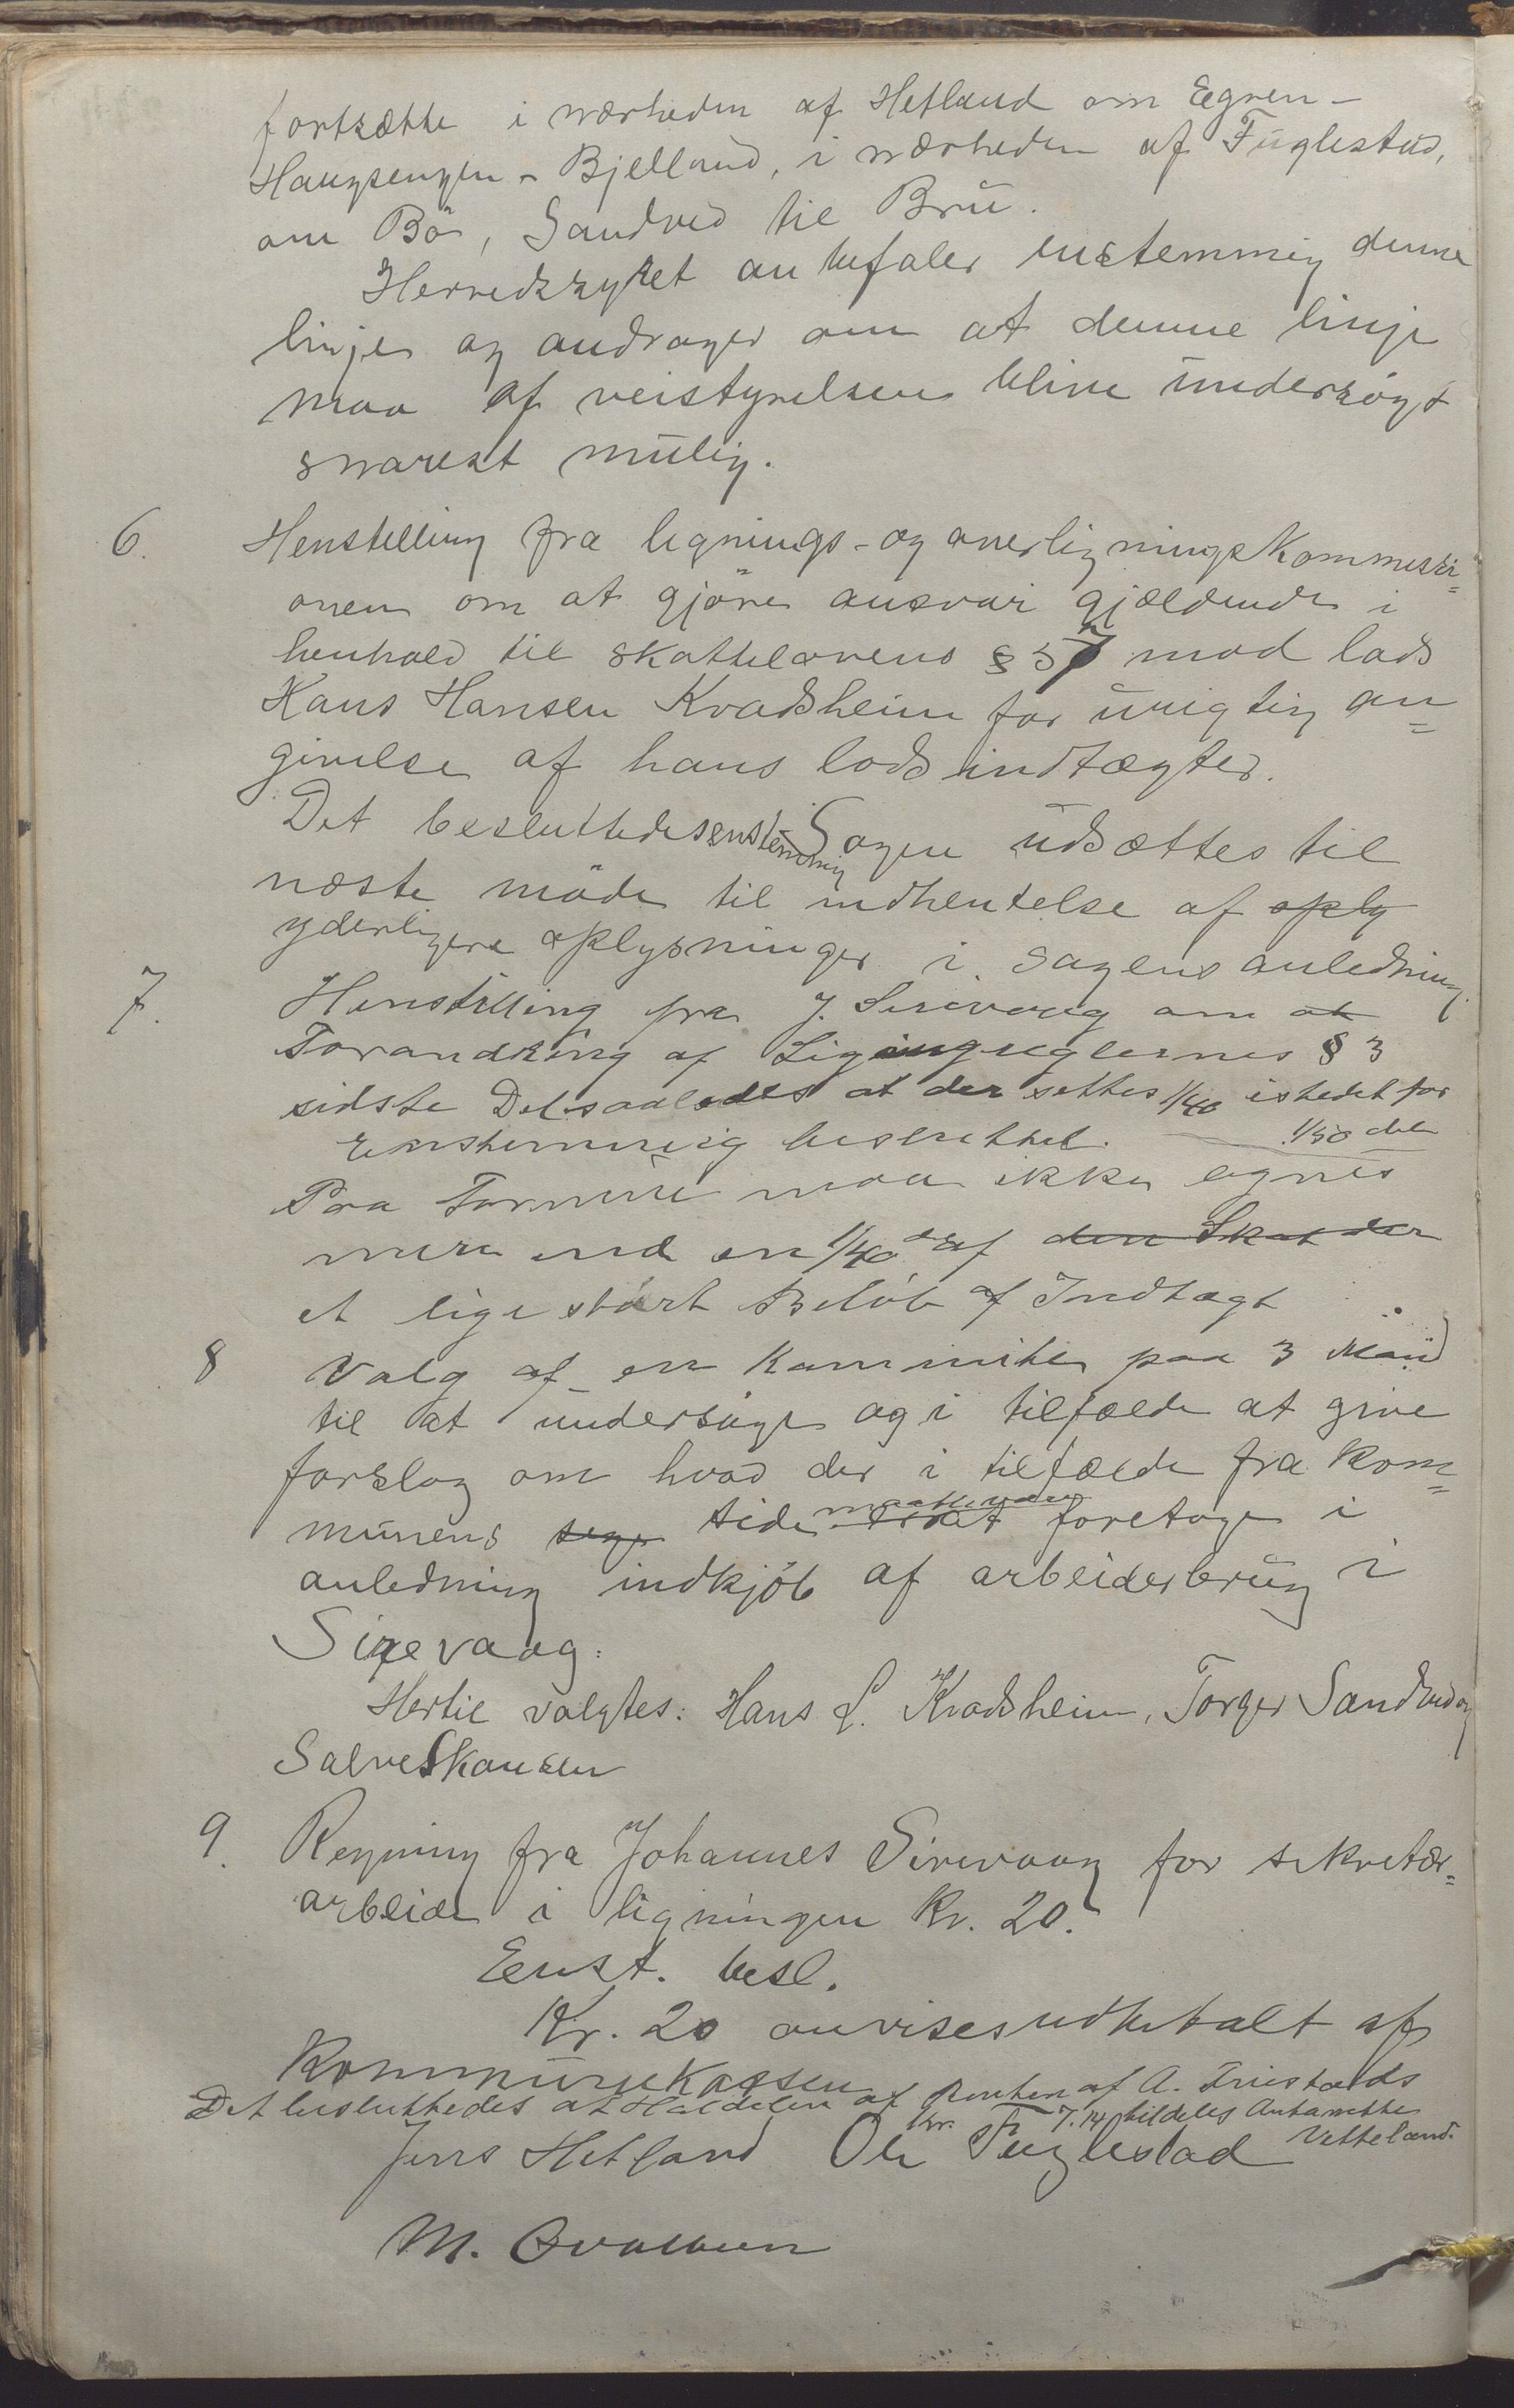 fortsætte i nærheden af Hetland om Egren-
Haugsengen - Bjelland, i nærheden af Fuglestad,
om Bö, Sandved til Bru.
Herredsstyret anbefaler enstemmig denne
linje og andrager om at denne linje
maa af veistyrelsen blive undersögt
snarest mulig.
6. Henstilling fra lignings- og overligningskommissi=
onen om at gjöre ansvar gjældende i
henhold til skattelovens § 57 mod lods
Hans Hansen Kvadsheim for urigtig an=
givelse af hans lodsindtægter.
Det besluttedes enstemmig Sagen udsættes til
næste möde til indhentelse af oply
yderligere oplysninger i sagens anledning.
7. Henstilling fra J. Sirevaag om at
Forandring af Ligningsreglernes § 3
sidste Del saaledes at der settes 1/40 istedet for
1/50 del
Enstemmig besluttet.
Paa Formue maa ikke lignes
mere end en 1/40 del af den Skat der
et lige stort Belöb af Indtægt
8 Valg af en kommite paa 3 Mand
til at undersöge og i tilfælde at give
forslag om hvad der i tilfælde fra kom=
munens side maatte være foretage i
anledning indkjöb af arbeiderbrug i
Sirevaag:
Hertil valgtes: Hans L. Kvadsheim, Torger Sandved og
Salve Skansen
9. Regning fra Johannes Sirevaag for sekretær=
arbeide i ligningen Kr. 20.
Enst. besl.
Kr. 20 anvises udbetalt af
Kommunekassen
Det besluttedes at Halvdelen af Renten af A. Friestads
Kr. 7.14 tildeles Antonette
Vetteland.
Jens Hetland Ole Fuglestad
M. Qvalbein